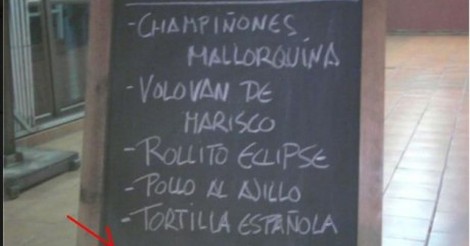 -CHAMPIÑONES
MALLORQUINA
-VOLOVAN DE
MARISCO
-ROLLITO ECLIPSE
-POLLO AL AJILLO
-TORTILLA ESPAÑOLA